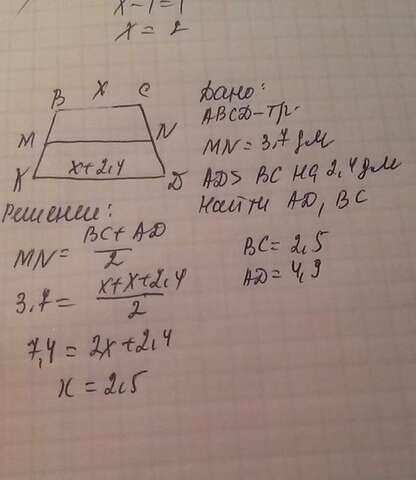 x-1=1
x=2
B x C
M N
K x+2,4 D
Дано:
ABCD-тр.
MN=3,7дм
AD> BC на 2,4дм
Найти AD, BC
Решение:
MN= BC+AD
2
3,7= x+x+2,4
2
7,4=2x+2,4
x=2,5
BC=2,5
AD=4,9